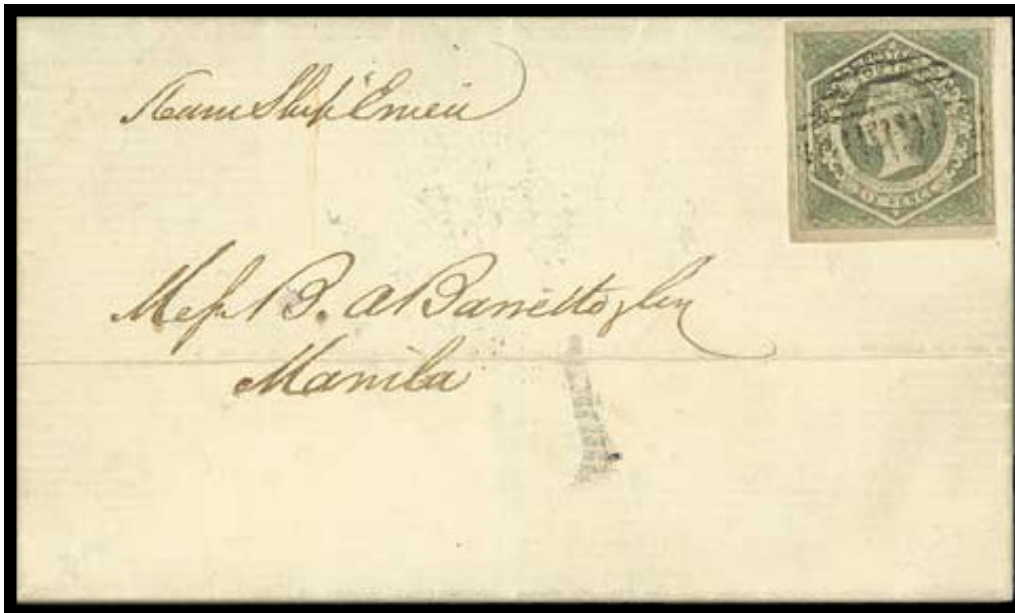 Steam Ship "Emeu
Mess. B. A Barretto & Co
Manila
PENCE